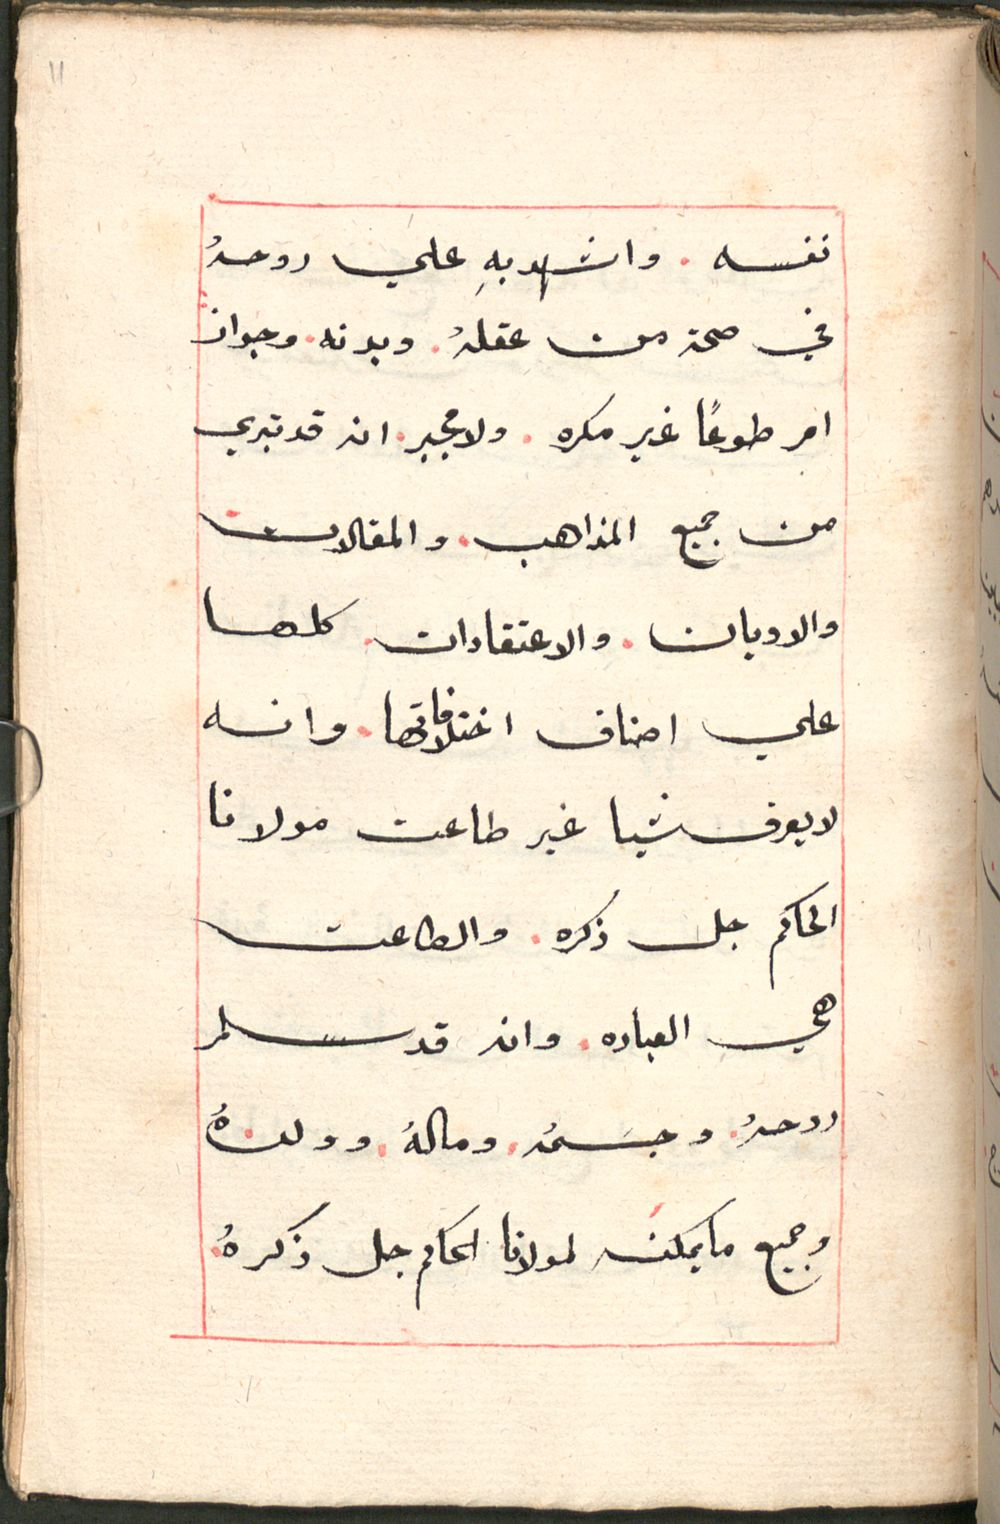 ١١
نفسه . واشهد بهِ علي روحهُ
في صحة من عقلهُ . وبدنه . وجواز
امر طوعًا غير مكره . ولا مجبر . انه قد تبري
من جميع المذاهب . والمقالات
والاديان . والاعتقادات . كلها
علي اصناف اختلافاتها . وانه
لا يعرف شيا غير طاعت مولانا
الحاكم جل ذكره . والطاعت
هي العباده . وانه قد سلم
روحهُ . وجسمهُ . ومالهُ . وولدهُ
وجميع ما يملكه لمولانا الحاكم جل ذكرهُ .